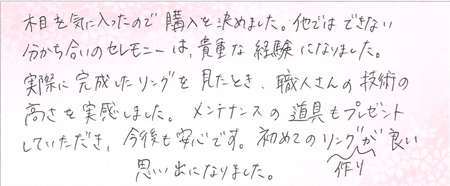 木目を気に入ったので購入を決めました。他ではできない
分かち合いのセレモニーは、貴重な経験になりました。
実際に完成したリングを見たとき、職人さんの技術の
高さを実感しました。メンテナンスの道具もプレゼント
していただき、今後も安心です。初めてのリングが良い
作り
思い出になりました。